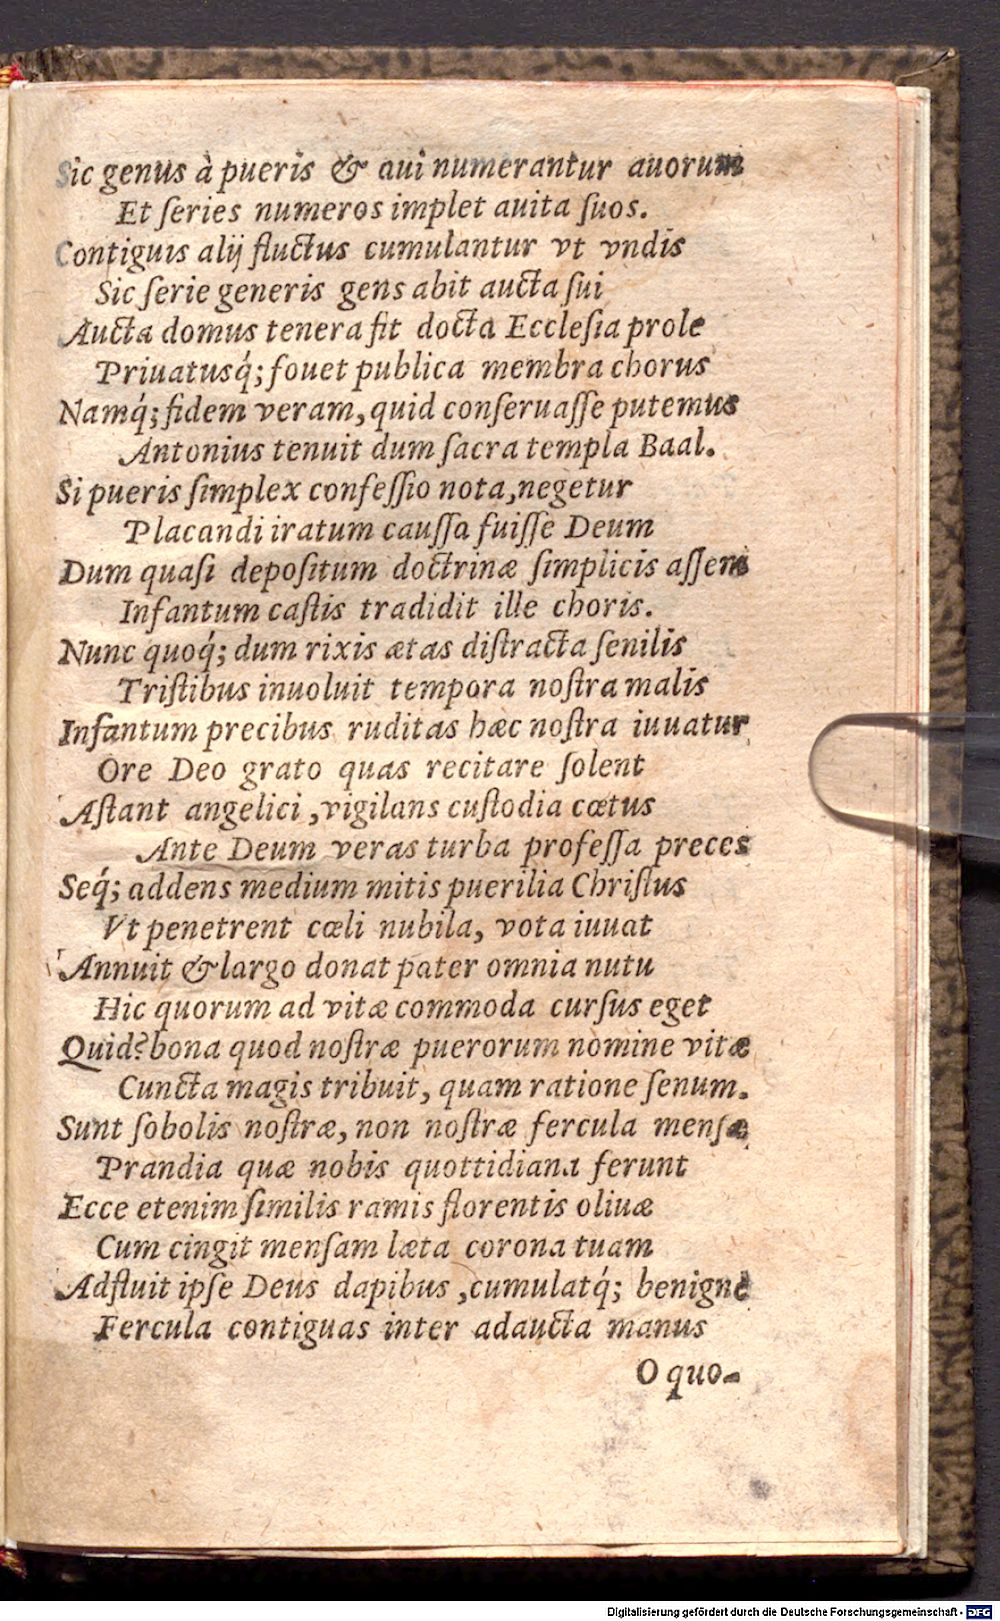 Sic genus à pueris & aui numerantur auorum
Et ſeries numeros implet auita ſuos.
Contiguis alij fluctus cumulantur vt vndis
Sic ſerie generis gens abit aucta ſui
Aucta domus tenera fit docta Eccleſia prole
Priuatusq́; fouet publica membra chorus
Namq́; fidem veram, quid conſeruaſſe putemus
Antonius tenuit dum ſacra templa Baal.
Si pueris ſimplex confeſſio nota, negetur
Placandi iratum cauſſa fuiſſe Deum
Dum quaſi depoſitum doctrinæ ſimplicis aſſem
Infantum caſtis tradidit ille choris.
Nunc quoq́; dum rixis ætas diſtracta ſenilis
Triſtibus inuoluit tempora noſtra malis
Infantum precibus ruditas hæc noſtra iuuatur
Ore Deo grato quas recitare ſolent
Aſtant angelici, vigilans cuſtodia cœtus
Ante Deum veras turba profeſſa preces
Seq́; addens medium mitis puerilia Chriſtus
Vt penetrent cœli nubila, vota iuuat
Annuit & largo donat pater omnia nutu
Hic quorum ad vitæ commoda curſus eget
Quid? bona quod noſtræ puerorum nomine vitæ
Cuncta magis tribuit, quam ratione ſenum.
Sunt ſobolis noſtræ, non noſtræ fercula menſæ
Prandia quæ nobis quottidiana ferunt
Ecce etenim ſimilis ramis florentis oliuæ
Cum cingit menſam læta corona tuam
Adfluit ipſe Deus dapibus, cumulatq́; benignè
Fercula contiguas inter adaucta manus
O quo-
Digitalisierung gefördert durch die Deutsche Forschungsgemeinschaft - DFG